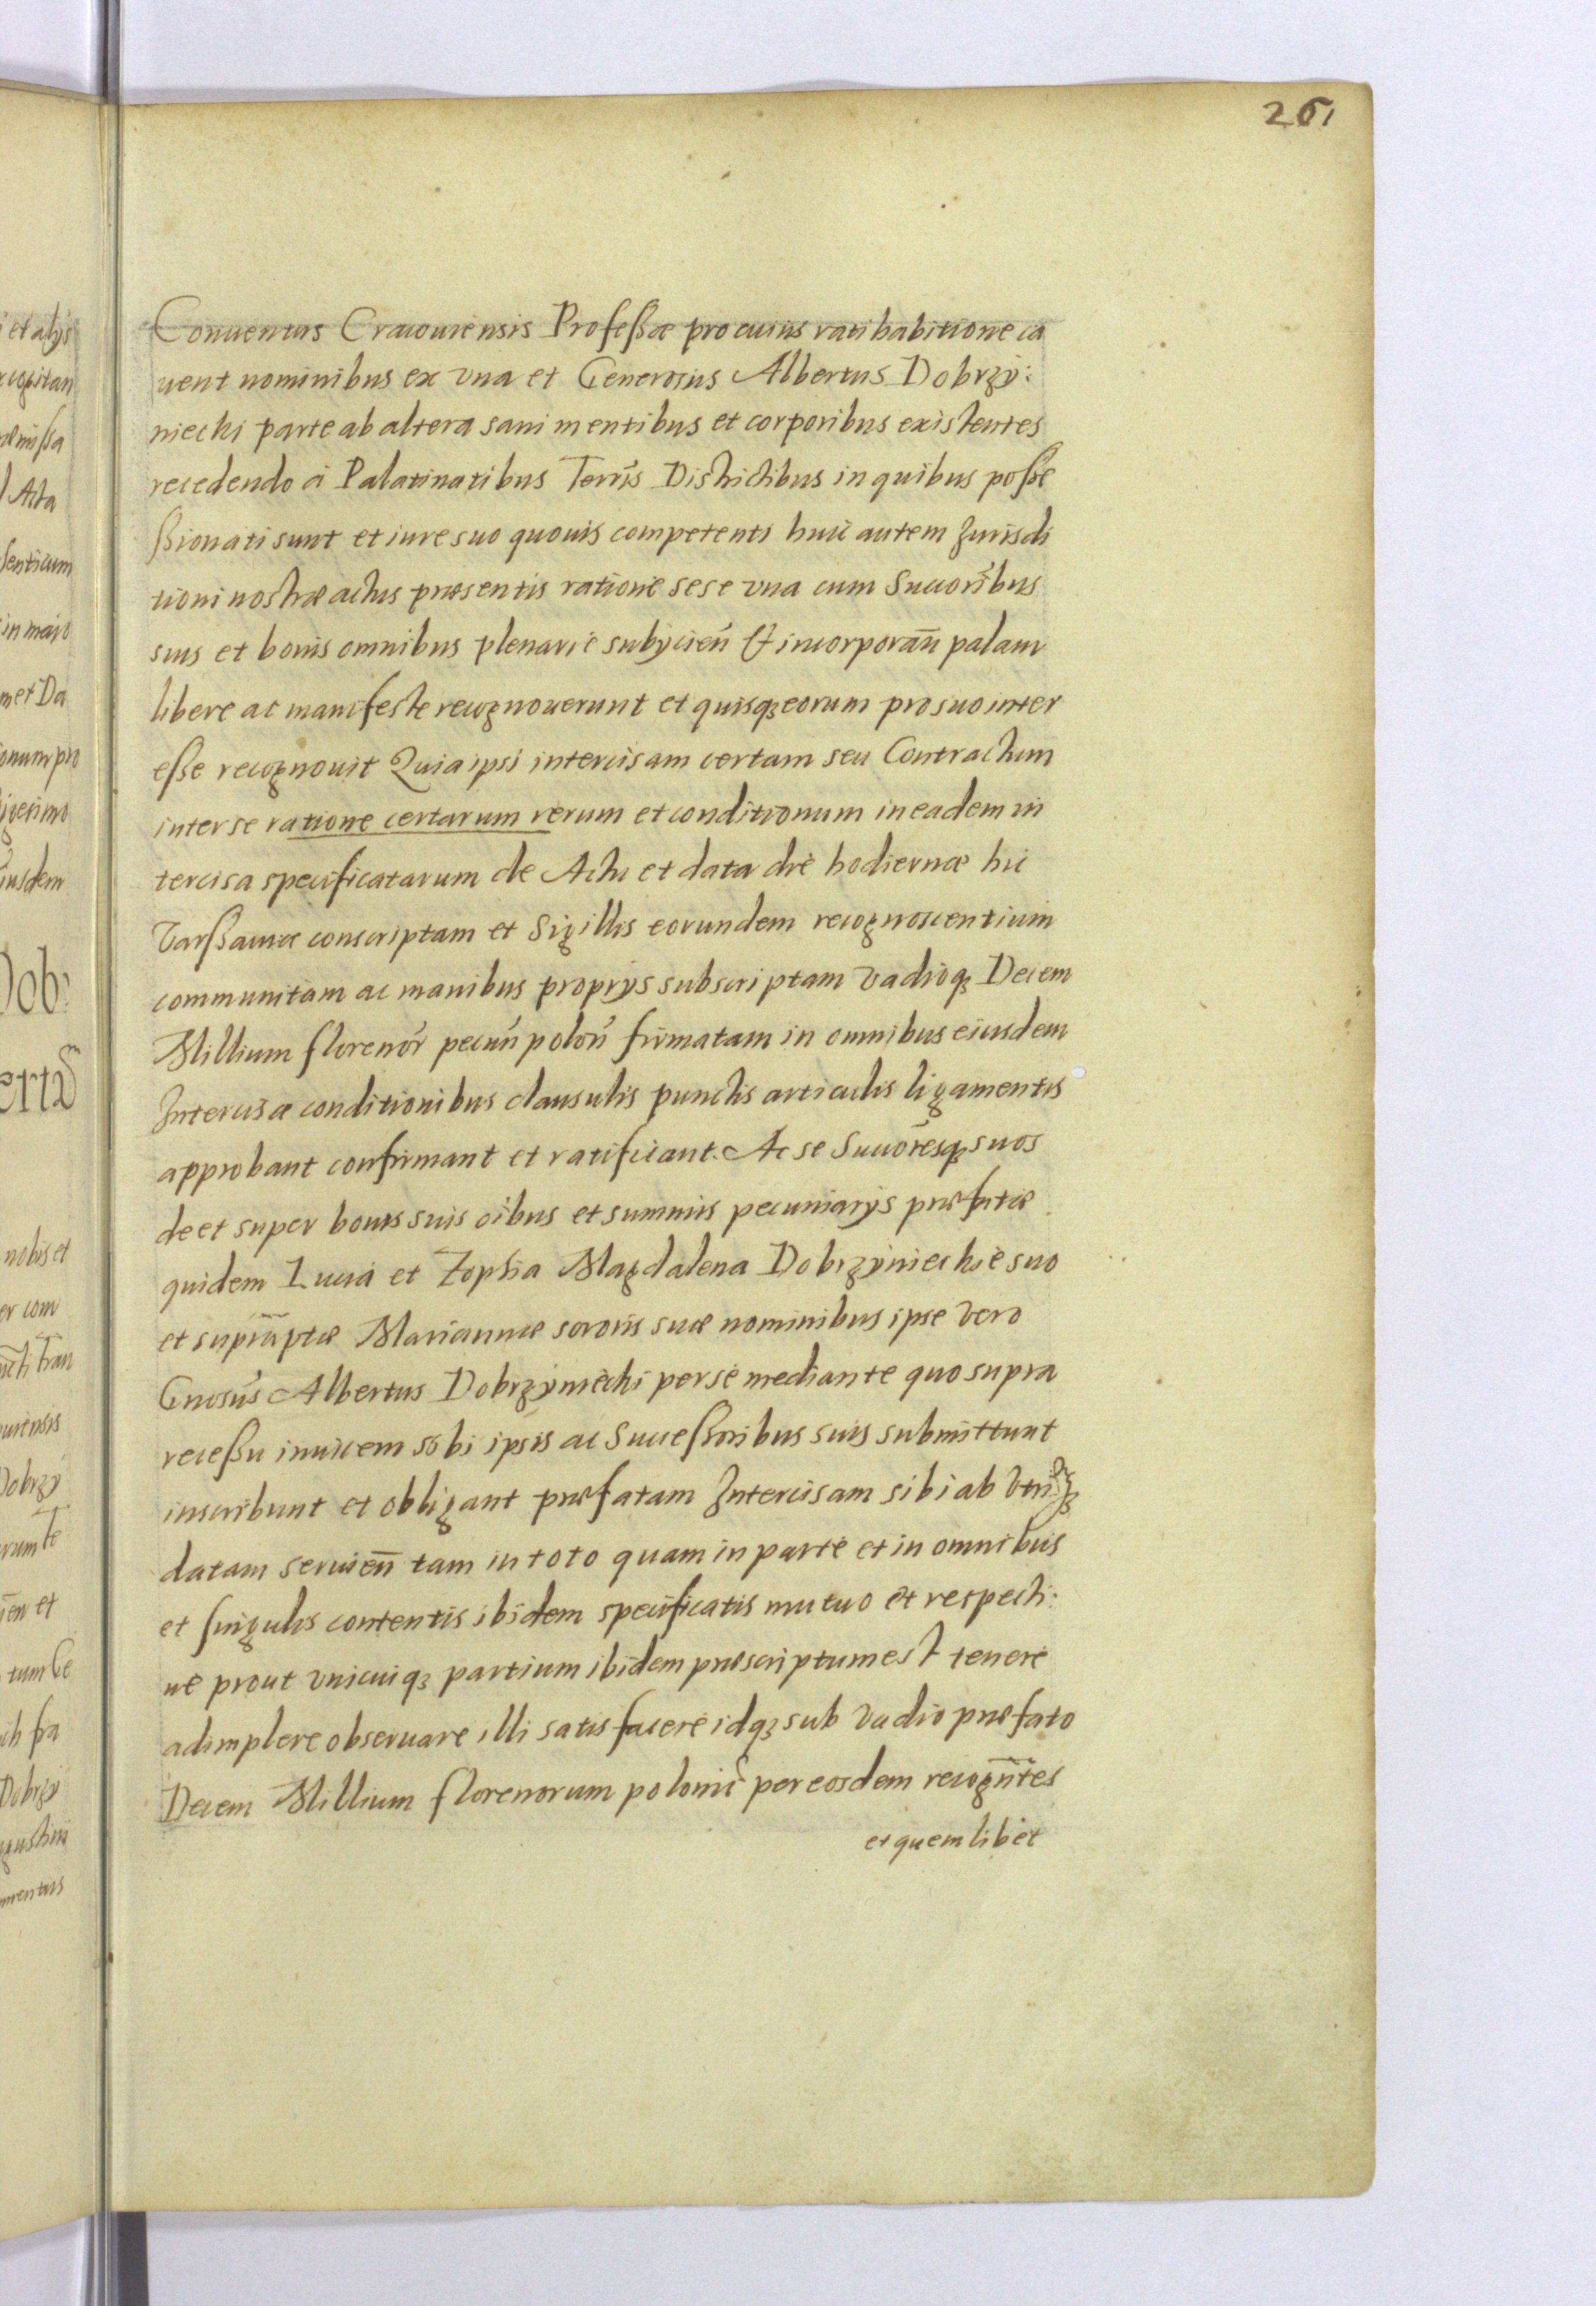 261
Conuentus Cracouiensis Professæ pro cuius ratihabitione ca
uent nominibus ex vna et Generosus Albertus Dobrzÿ:
niecki parte ab altera sani mentibus et corporibus existentes
recedendo à Palatinatibus Terris Districtibus in quibus posse
ssionati sunt et iure suo quouis competenti huic autem Jurisdi
tioni nostræ actus præsentis ratione sese vna cum Succoribus
suis et bonis omnibus plenarie subÿcień & incorporan̄ palam
libere ac manifeste recognouerunt et quisqꝫ eorum pro suo inter
esse recognouit Quia ipsi intercisam certam seu Contractum
inter se ratione certarum rerum et conditionum in eadem in
tercisa specificatarum de Actu et data diè hodiernæ hic
Varssauiæ conscriptam et Sigillis eorundem recognoscentium
communitam ac manibus proprÿs subscriptam vadioqꝫ Decem
Millium florenor̄ pecun̄ polon̄ firmatam in omnibus eiusdem
Intercisæ conditionibus clausulis punctis articulis ligamentis
approbant confirmant et ratificant. Ac se Succōresqꝫ suos
de et super bonis suis oībus et summis pecuniarÿs præfatæ
quidem Lucia et Zophia Magdalena Dobrzÿnieckie suo
et supra͞ptæ Mariannæ sororis suæ nominibus ipse vero
Gnosus Albertus Dobrzÿniecki per se mediante quo supra
recessu inuicem sibi ipsis ac Successoribus suis submittunt
inscribunt et obligant præfatam Intercisam sibi ab vtrinqꝫ
datam seruien̄ tam in toto quam in parte et in omnibus
et singulis contentis ibidem specificatis mutuo et respecti:
ue prout vnicuiqꝫ partium ibidem præscriptum est tenere
adimplere obseruare illi satisfacere idqꝫ sub vadio præfato
Decem Millium florenorum polonic̄ per eosdem recogn̄tes
et quemlibet